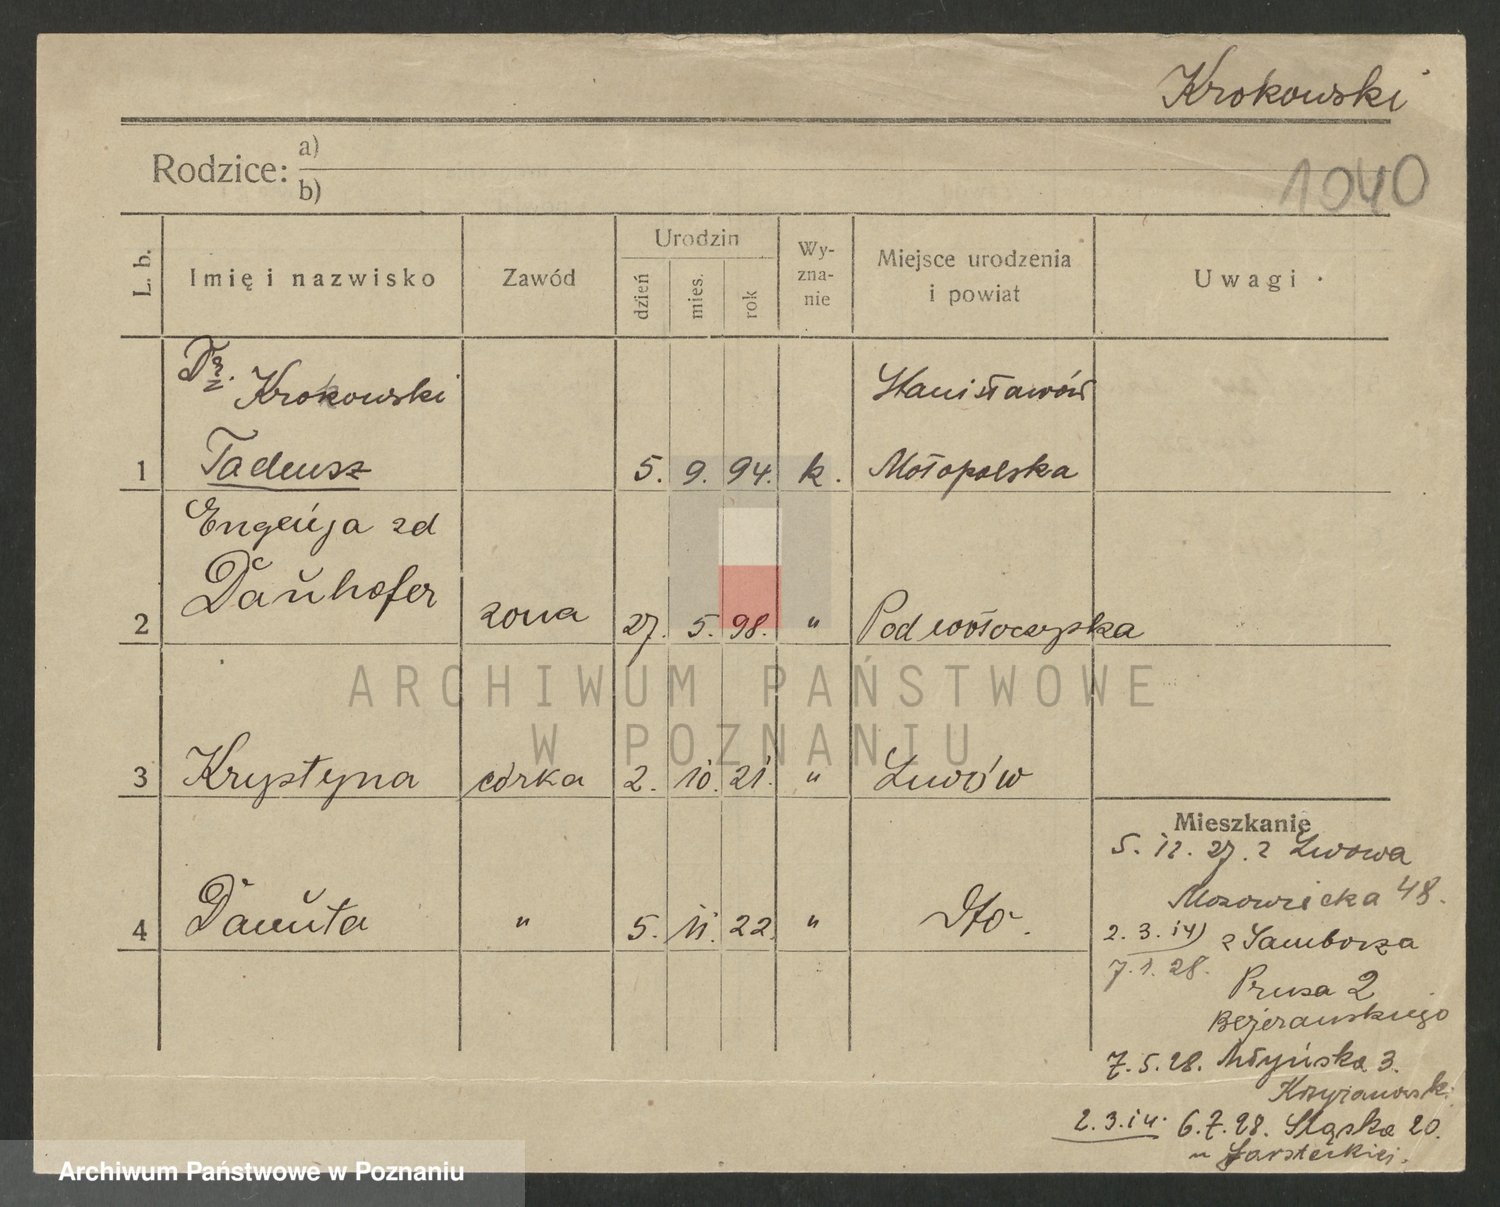 Krokowski
1040
Rodzice: a)
b)
L. b. Imię i nazwisko Zawód Urodzin dzień mies. rok Wy-zna-nie Miejsce urodzenia i powiat Uwagi
Dr. Krokowski Stanisławów
1 Tadeusz 5. 9. 94. k. Małopolska
Eugenja zd
Dauhofer
2 żona 27. 5. 98. " Podwołoczyska
ARCHIWUM PAŃSTWOWE
W POZNANIU
3 Krystyna córka 2. 10. 21. " Lwów
Mieszkanie
5. 12. 27. z Lwowa
Mazowiecka 48.
4 Danuta " 5. 11. 22. " Dto.
2. 3. 14) z Sambora
7. 1. 28.
Prusa 2
7. 5. 28. Młyńska 3.
2. 3. 14. 6. 7. 28. Śląska 20.
Archiwum Państwowe w Poznaniu